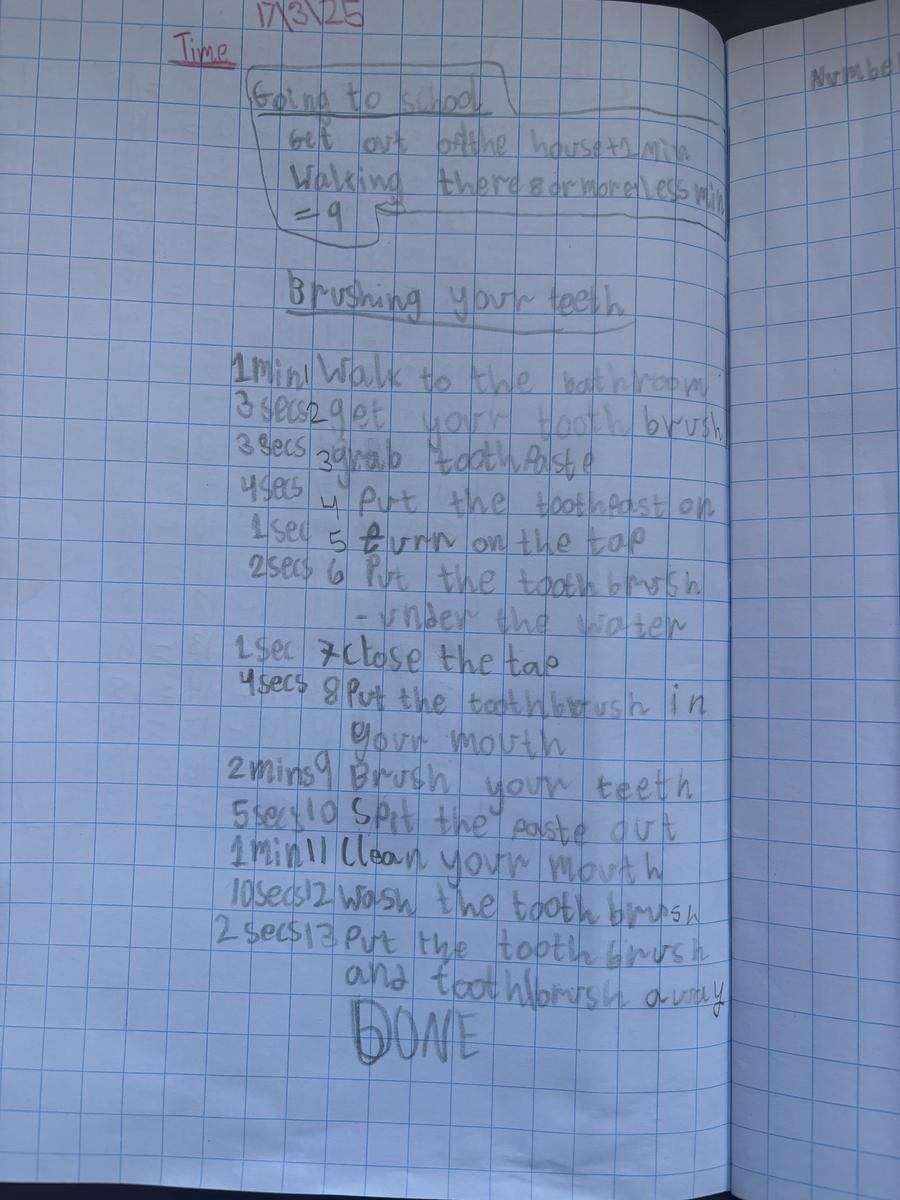 17\3\25
Time
Going to school
Get out of the house + 1 min
Walking there 8 or more less min
= 9
Brushing your teeth
1min 1 Walk to the bathroom
3 secs 2 get your tooth brush
3 secs 3 grab toothPaste
4 secs 4 Put the toothpast on
1 sec 5 turn on the tap
2 secs 6 Put the tooth brush
- under the water
1 sec 7 Close the tap
4 secs 8 Put the toothbrush in
your mouth
2 mins 9 Brush your teeth
5 secs 10 Spit the paste out
1 min 11 Clean your mouth
10 secs 12 Wash the tooth brush
2 secs 13 Put the tooth brush
and toothbrush away
DONE